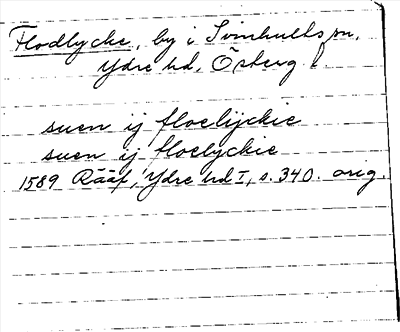 Flodlycke, by i Svinhults sn,
Ydre hd, Österg l.
suen ij floelijckie
suen ij floelyckie
1589 Rääf, Ydre hd I, s. 340. orig.